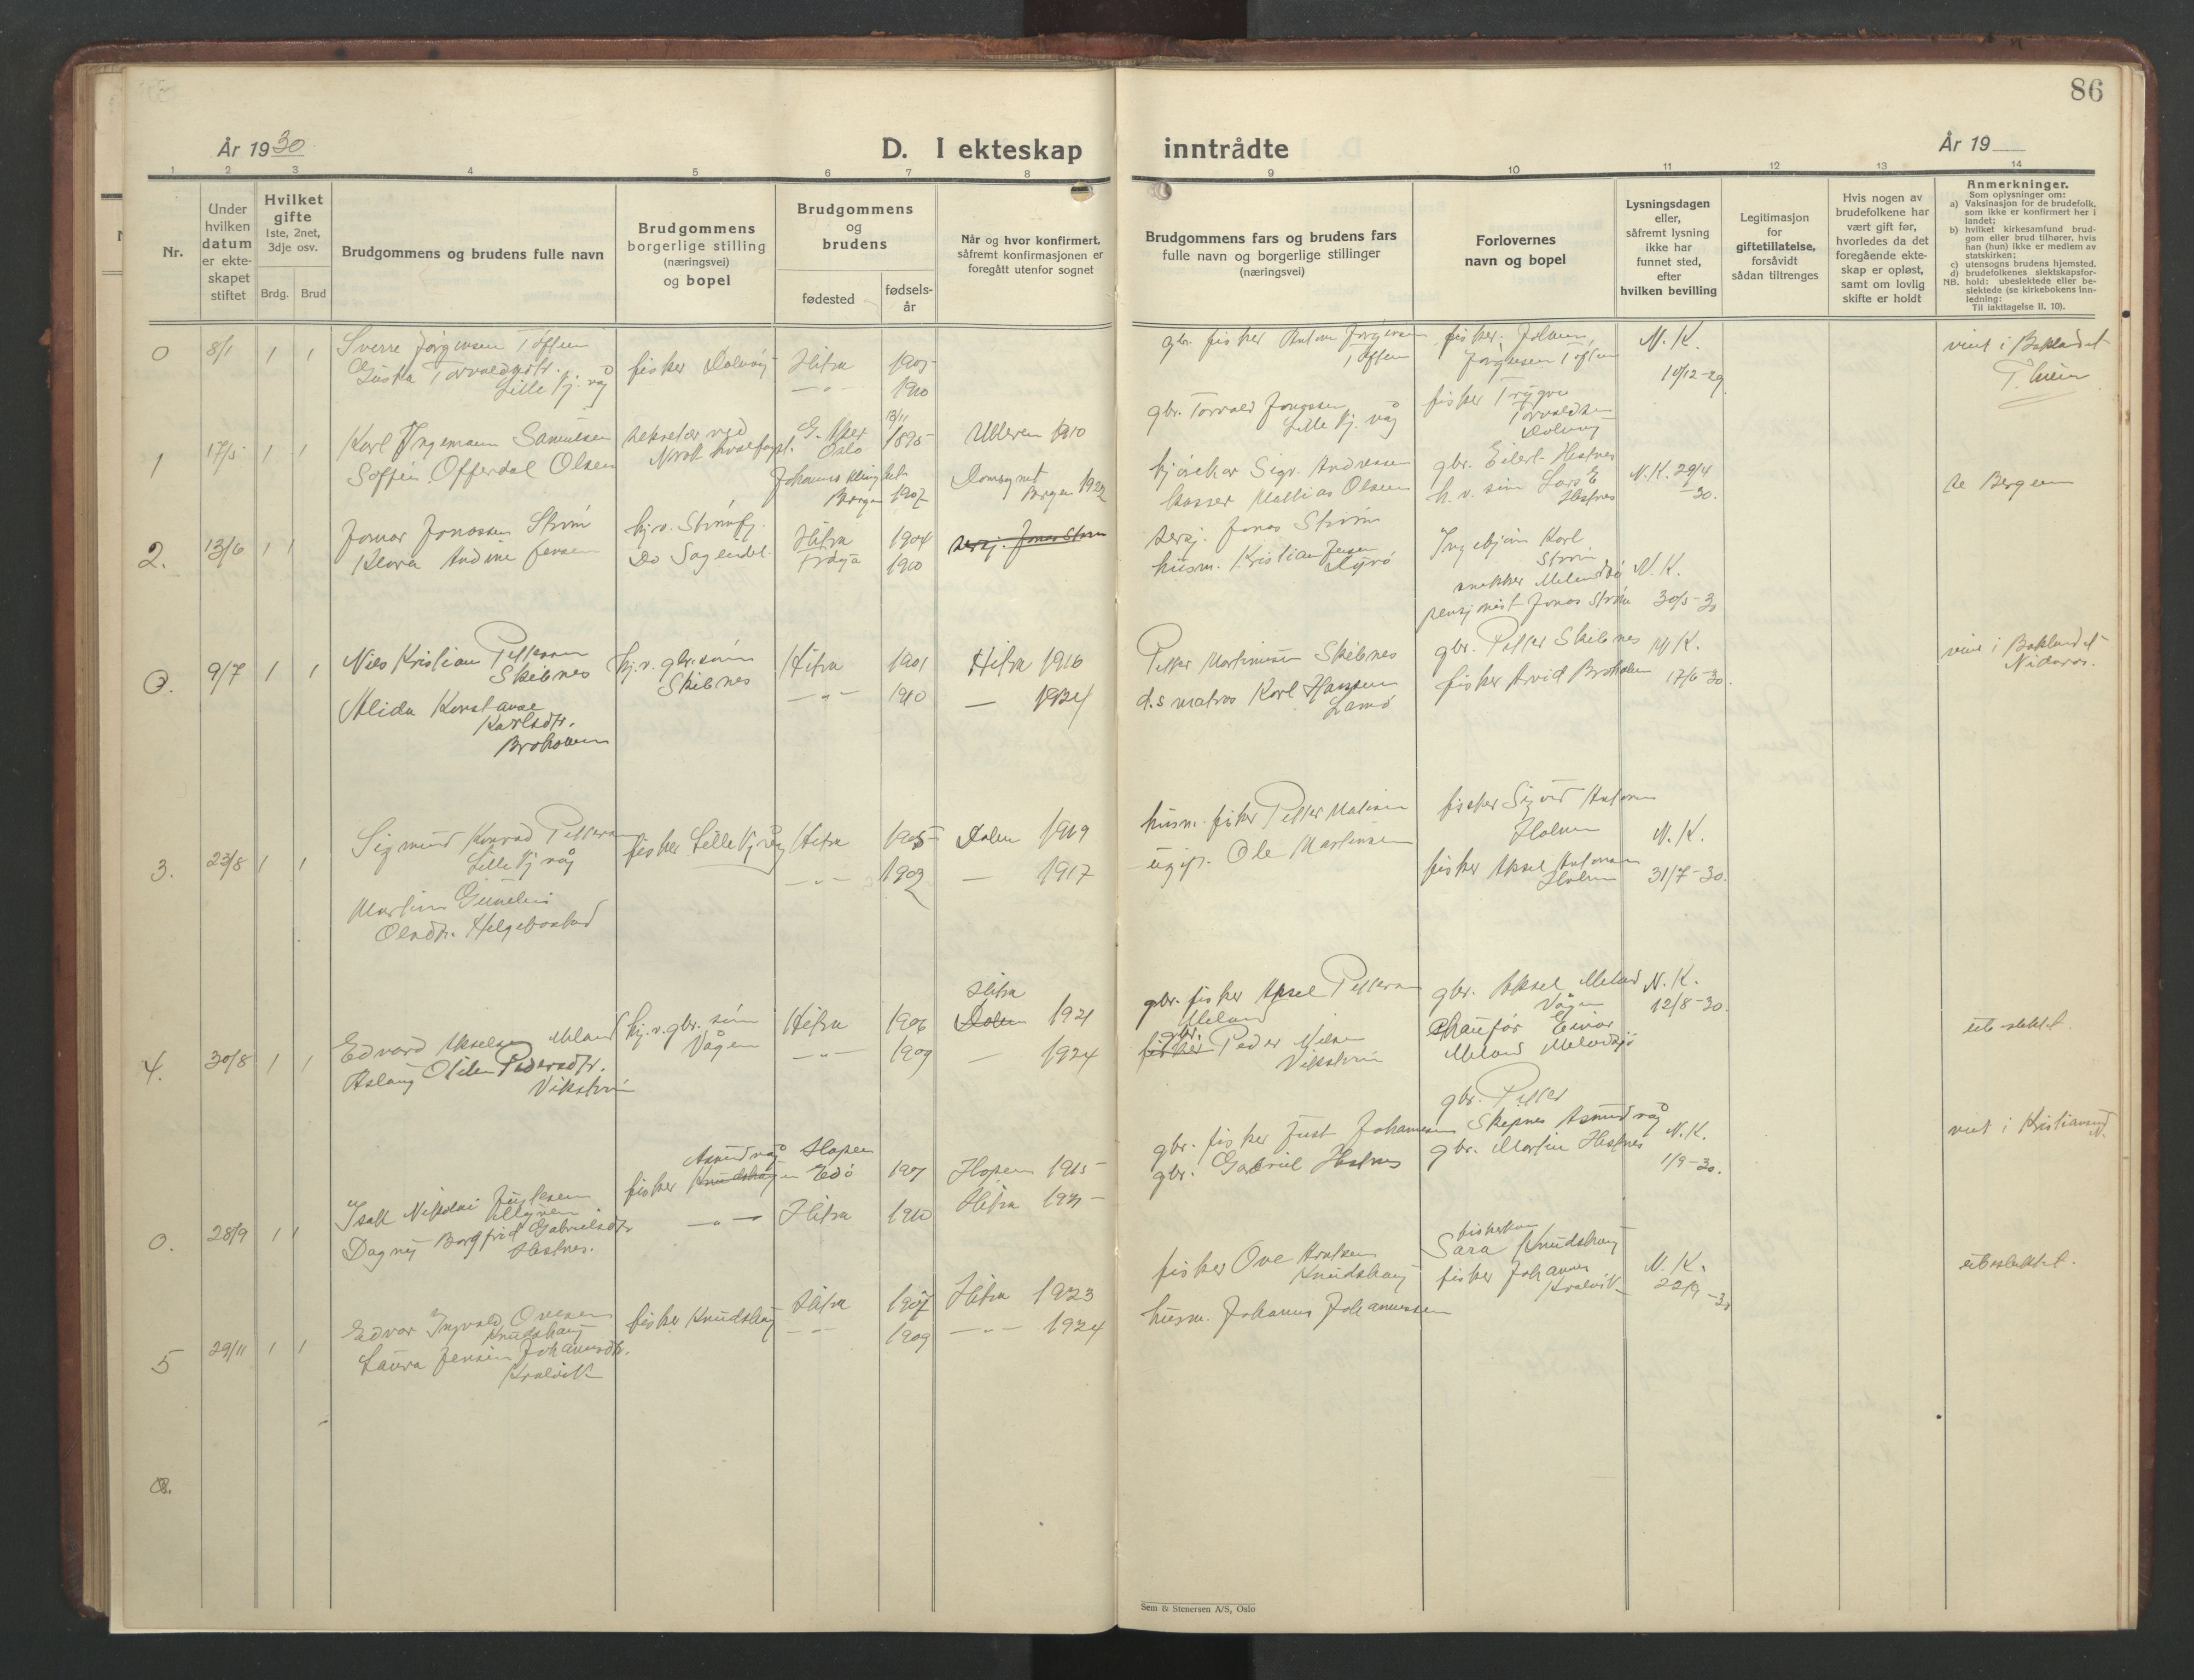 86
År 1930
D. I ekteskap inntrådte
År 19
1 2 3 4 5 6 7 8 9 10 11 12 13 14
Nr.
Under
hvilken
datum
er ekte-
skapet
stiftet
Hvilket
gifte
1ste, 2net,
3dje osv.
Brdg. Brud
Brudgommens og brudens fulle navn
Brudgommens
borgerlige stilling
(næringsvei)
og bopel
Brudgommens
og
brudens
fødested
fødsels-
år
Når og hvor konfirmert.
såfremt konfirmasjonen er
foregått utenfor sognet
Brudgommens fars og brudens fars
fulle navn og borgerlige stillinger
(næringsvei)
Forlovernes
navn og bopel
Lysningsdagen
eller,
såfremt lysning
ikke har
funnet sted,
efter
hvilken bevilling
Legitimasjon
for
giftetillatelse,
forsåvidt
sådan tiltrenges
Hvis nogen av
brudefolkene har
vært gift før,
hvorledes da det
foregående ekte-
skap er opløst,
samt om lovlig
skifte er holdt
Anmerkninger.
Som oplysninger om:
a) Vaksinasjon for de brudefolk,
som ikke er konfirmert her i
landet;
b) hvilket kirkesamfund brud-
gom eller brud tilhører, hvis
han (hun) ikke er medlem av
statskirken;
c) utensogns brudens hjemsted.
d) brudefolkenes slektskapsfor-
NB. hold: ubeslektede eller be-
slektede (se kirkebokens inn-
ledning:
Til iakttagelse II. 10).
0 8/1 1 1 Sverre Jørgensen Toften
fisker Dolvåg Hitra 1905
gbr. fisker Anton Jørgensen
Toften
fisker Johan
Jørgensen Toften
N. K.
10/12-29
viet i Baklandet
Torvaldsdtr.
Lille Kj.våg
— " — 1910
gbr. Torvald Jonassen
Lille Kj.våg
fisker Trygve
Torvaldsen
Dolvåg
1 17/5 1 1 Karl Ingemann Samuelsen
sekretær ved
Norsk
Aker
Oslo
13/11
1895
Ulleren 1910
Sigv. Andressen
gbr. Eilert Hestnes
N.K. 29/4
-30.
Offerdal Olsen
Johannes
Bergen 1907
Domsognet
Bergen 1922
Mattias Olsen
Lars E
Hestnes
se Bergen
2. 13/6 1 1 Jomar Jonassen Strøm
hj.v. Strømfj.
Hitra 1904
persj. Jonas Strøm
persj. Jonas Strøm
Ingebjør Karl
Strøm
Klara Andine Jensen
Do
Frøya 1910
husm. Kristian Jensen
snekker Melandsjø
N. K.
pensjonist Jonas Strøm 30/5-30
0. 9/7 1 1 Nils Kristian Pettersen
Skibnes
hj.v. gbr. sønn
Skibnes
Hitra 1901
Hitra 1916
Petter Martinusen Skibnes
gbr. Petter Skibnes
N. K.
17/6-30.
viet i Baklandet
Nidaros.
Alida Konstanse
Karlsdtr.
Broholmen
— " — 1910
— 1924
d.s matros Karl Hansen
fisker Arvid Broholmen
3. 23/8 1 1 Sigmund Konrad Pettersen
Lille Kj.våg
fisker Lille Kj.våg Hitra 1905
Dolm 1919
husm. fisker Petter
fisker Sigvard Antonsen
Holmen
N. K.
31/7-30.
Olsdtr. Helgebostad
— " — 1903
— 1917
Ole Martinsen
fisker Aksel Antonsen
Holmen
4. 30/8 1 1 Edvard Akselsen Meland
hj.v. gbr. sønn
Vågen
Hitra 1906
Hitra
Dolm 1921
gbr. fisker Aksel Pettersen
Meland
gbr. Aksel Meland
Vågen
N. K.
12/8-30.
Aslaug Otilie Pedersdtr.
Vikstrøm
— " — 1909
— 1924
gbr.
fisker Peder Nilsen
Vikstrøm
chaufør Einar
Meland Melandsjø
ubeslektet.
0. 28/9 1 1 Isak Nikolai Justsen
fisker Asmundvåg
Knudshaugen
Hopen
Edø 1901
Hopen 1915
gbr. fisker Just Johannesen
gbr. Petter
Skepnes Asmundvåg
N. K.
1/9-30.
viet i Kristiansund N.
Dagny Borgfrid Gabrielsdtr
Hestnes.
— " — Hitra 1910
Hitra 1925
gbr. Gabriel Hestnes
gbr. Martin Hestnes
5 29/11 1 1 Edvar Ingvald Ovesen
Knudshaug
fisker Knudshaug
Hitra 1907
Hitra 1923
fisker Ove
Knudshaug
fiskerkone
Sara Knudshaug
N. K.
22/9-30
ubeslektet.
Laura Jensine Johannesdtr.
Kvalvik
— " — 1909
— " — 1924
husm. Johannes Johannessen
fisker Johannes
Kvalvik
Sem & Stenersen A/S, Oslo